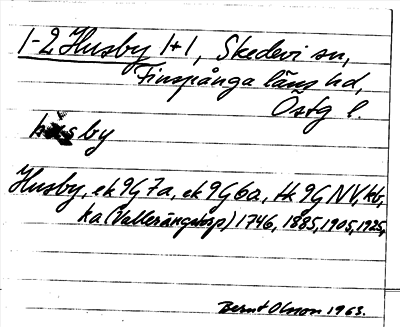 1-2 Husby 1+1, Skedevi sn,
Finspånga läns hd,
Östg l.
husby
Husby, ek 9G 7a, ek 9G 6a, tk 9G NV, kb,
ka (Vallerängstorp) 1746, 1885, 1905, 1925,
Bernt Olsson 1963.